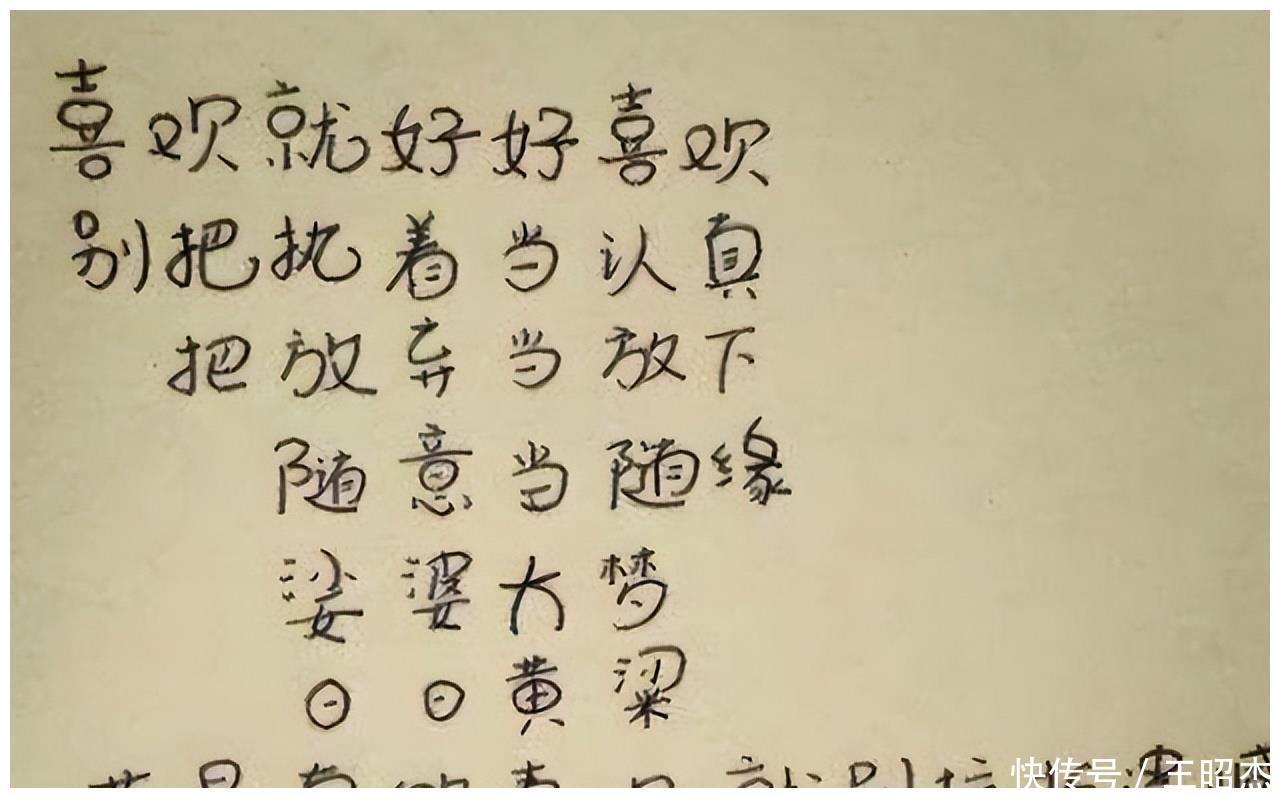 喜欢就好好喜欢
别把执着当认真
把放弃当放下
随意当随缘
娑婆大梦
日日黄粱
快传号 / 王昭杰